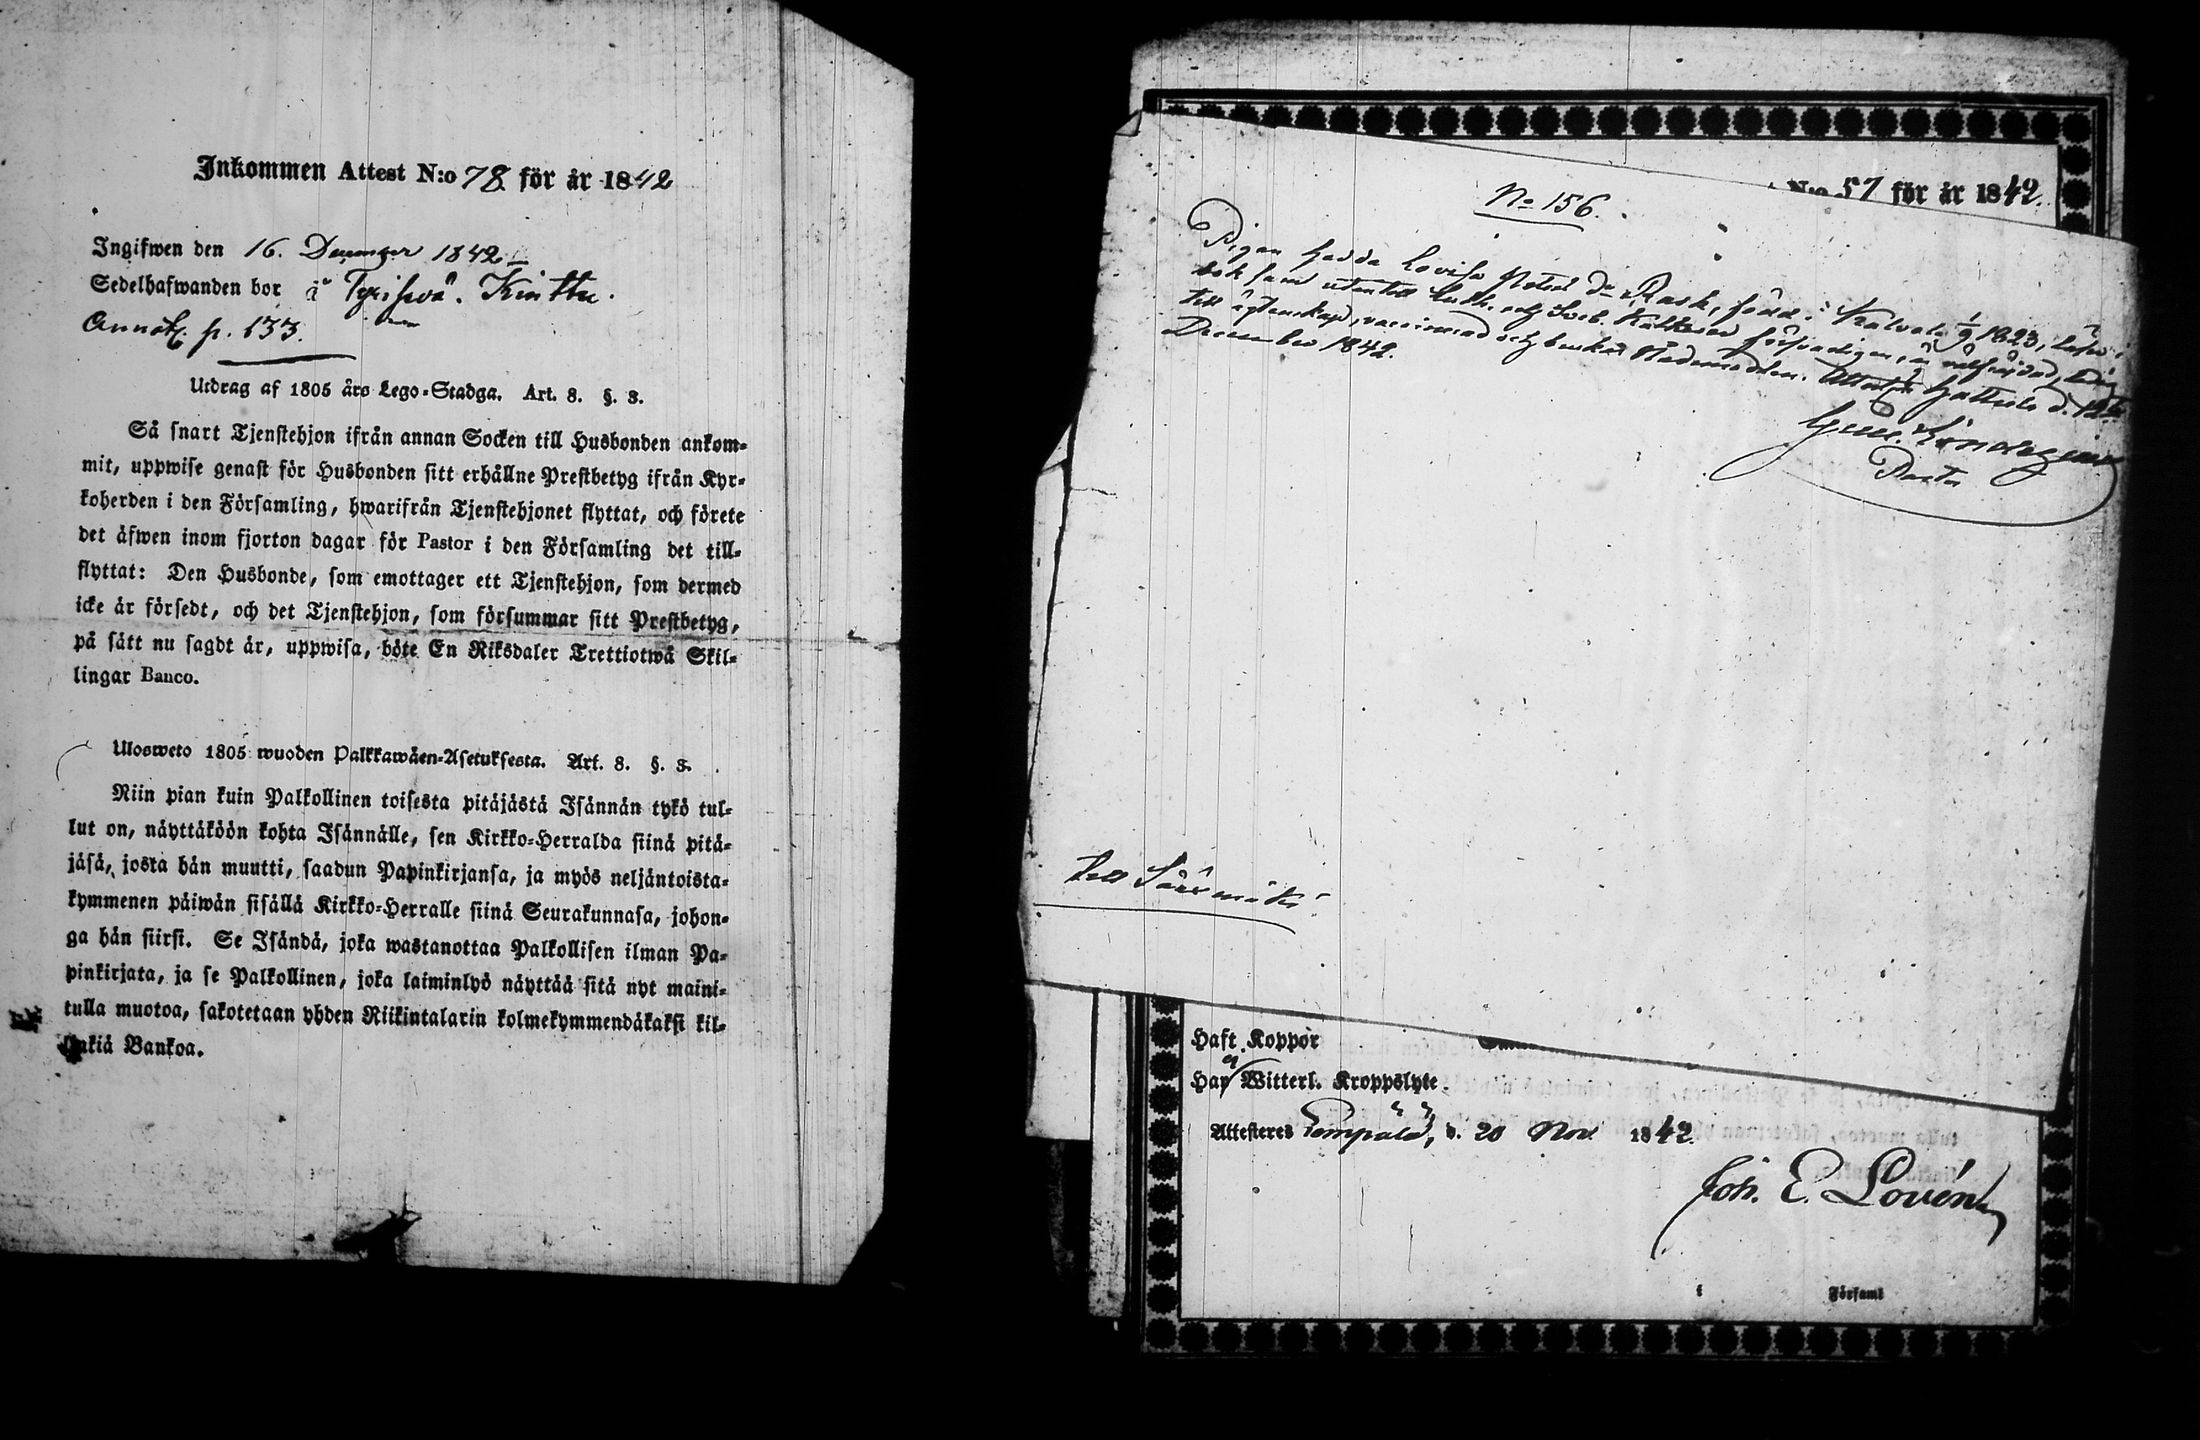 Inkommen Attest N:o 78 för år 1842
Ingifwen den 16. December 1842
Sedelhafwanden bor å Kinttu.
Annot. p. 133.
Utdrag af 1805 års Lego-Stadga. Art. 8. §. 3.
Så snart Tjenstehjon ifrån annan Socken till Husbonden ankom-
mit, uppwise genast för Husbonden sitt erhållne Prestbetyg ifrån Kyr-
koherden i den Församling, hwarifrån Tjenstehjonet flyttat, och förete
det äfwen inom fjorton dagar för Pastor i den Församling det till-
flyttat: Den Husbonde, som emottager ett Tjenstehjon, som dermed
icke är försedt, och det Tjenstehjon, som försummar sitt Prestbetyg,
på sätt nu sagdt är, uppwisa, böte En Riksdaler Trettiotwå Skil-
lingar Banco.
Ulosweto 1805 wuoden Palkkawäen-Asetuksesta. Art. 8. §. 3.
Niin pian kuin Palkollinen toisesta pitäjästä Isännän tykö tul-
lut on, näyttäköön kohta Isännälle, sen Kirkko-Herralda siinä pitä-
jäsä, josta hän muutti, saadun Papinkirjansa, ja myös neljäntoista-
kymmenen päiwän sisällä Kirkko-Herralle siinä Seurakunnasa, johon-
ga hän siirsi. Se Isändä, joka wastanottaa Palkollisen ilman Pa-
pinkirjata, ja se Palkollinen, joka laiminlyö näyttää sitä nyt maini-
tulla muotoa, sakotetaan yhden Riikintalarin kolmekymmendäkaksi kil-
linkiä Bankoa.
N:o 57 för år 1842.
No 156.
Pigan Hedda Lovisa Peters dr Rask, född i Kalvola 1/9 1823, läser i
bok samt utantill Luth. och Sveb. försvarligen, är välfrejdad, ledig
till äktenskap, vaccinerad och Attest. Hattula d.
December 1842.
Pastor
till Sääxmäki
Haft Koppor
Har ej Witterl. Kroppslyte.
Attesteres Lempälä, d. 20 Nov. 1842.
Joh. E. Lovén
i Församl